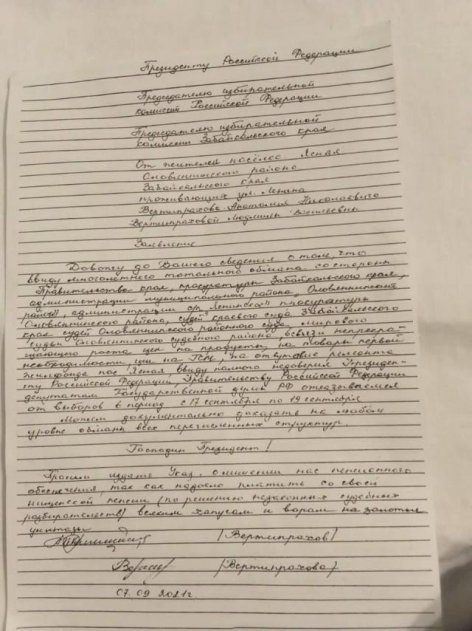 Президенту Российской Федерации
Председателю избирательной
комиссии Российской Федерации
Председателю избирательной
комиссии Забайкальского края
От жителей посёлка Ясная
Оловяннинского района
Забайкальского края
проживающих ул. Ленина
Вертипрахова Анатолия Николаевича
Вертипраховой Людмилы
Заявление
Довожу до Вашего сведения о том, что
ввиду многолетнего тотального обмана со стороны
Правительства края, прокуратуры Забайкальского края,
администрации муниципального района Оловяннинский
район, администрации прокуратуры
Оловяннинского района, судей краевого суда Забайкальского
края, судей Оловяннинского районного суда, мирового
судьи Оловяннинского судебного района, в связи непрекра-
щающего роста цен на продукты, на товары первой
необходимости, цен на отсутствие ремонта
жилфонда пос. Ясная, ввиду полного недоверия Президен-
ту Российской Федерации, Правительству Российской Федерации
депутатам Государственной думы РФ отказываемся
от выборов в период с 17 сентября по 19 сентября
Можем документально доказать на любом
уровне обман всех перечисленных структур.
Господин Президент!
Просим издать Указ, о лишении нас пенсионного
обеспечения, так как надоело платить со своей
нищенской пенсии (по решению незаконных судебных
разбирательств) всяким хапугам и ворам на золотые
унитазы
/Вертипрахов/
/Вертипрахова/
07. 09 2021г